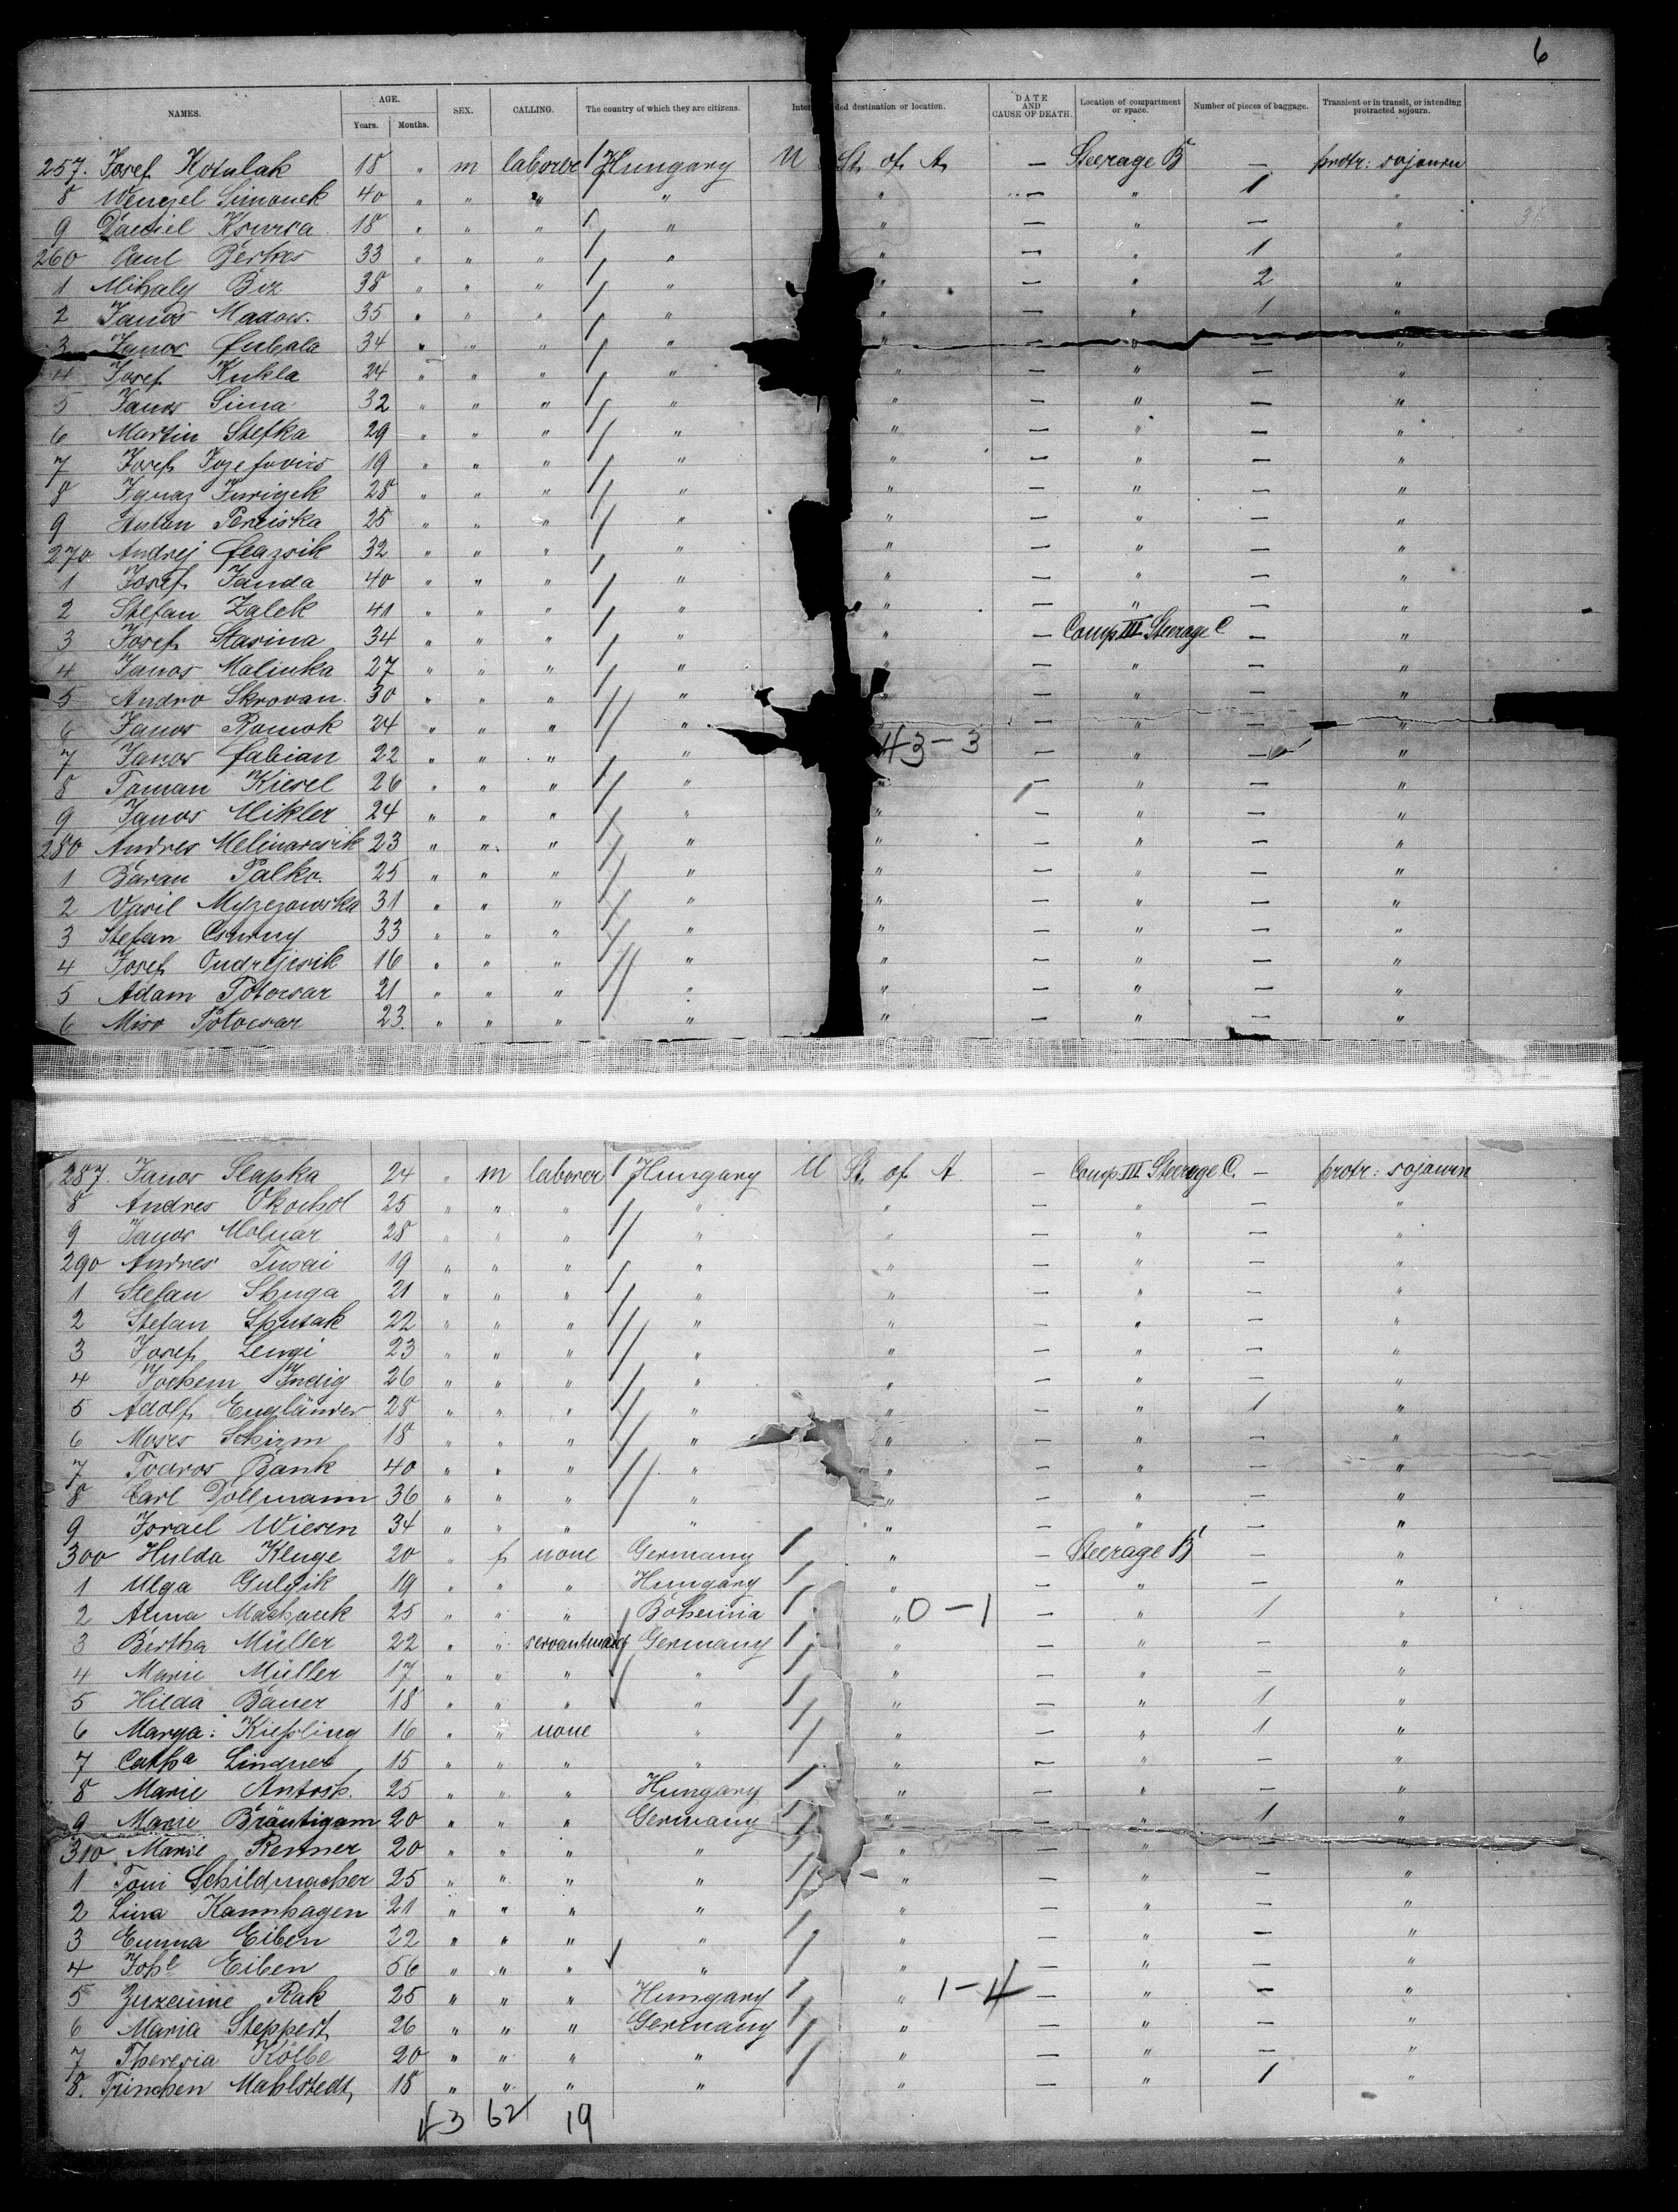 6
NAMES. AGE. Years. Months. SEX. CALLING. The country of which they are citizens. Intended destination or location. DATE AND CAUSE OF DEATH. Location of compartment or space. Number of pieces of baggage. Transient or in transit, or intending protracted sojourn.
257. Josef Kotulak 18 " m laborer Hungary U St. of A. — Steerage B — protr: sojourn
8 Wenzel Simonek 40 " " " " " — " 1 "
9 Daniel 18 " " " " " — " — "
260 Paul Berkes 33 " " " " " — " 1 "
1 Mihaly Biz 38 " " " " " — " 2 "
2 Janos 35 " " " " " — " 1 "
3 Janos 34 " " " " " — " — "
4 Josef Kukla 24 " " " " " — " — "
5 Janos Sima 32 " " " " " — " — "
6 Martin Stefka 29 " " " " " — " — "
7 Josef Jozefovics 19 " " " " " — " — "
8 Ignaz Juriczek 28 " " " " " — " — "
9 Anton 25 " " " " " — " — "
270 Andrej 32 " " " " " — " — "
1 Josef Janda 40 " " " " " — " — "
2 Stefan Zalek 41 " " " " " — " — "
3 Josef Stasina 34 " " " " " — Comp III Steerage C — "
4 Janos Malinka 27 " " " " " — " — "
5 Andro Skrovan 30 " " " " " — " — "
6 Janos Romok 24 " " " " " — " — "
7 Janos Fabian 22 " " " " 43-3 — " — "
8 Toman Kiesel 26 " " " " " — " — "
9 Janos Mikler 24 " " " " " — " — "
280 Andres Melinarcsik 23 " " " " " — " — "
1 Baran Palko 25 " " " " " — " — "
2 Vasil 31 " " " " " — " — "
3 Stefan Csurny 33 " " " " " — " — "
4 Josef Ondrejcsik 16 " " " " " — " — "
5 Adam Potocsar 21 " " " " " — " — "
6 Miso Potocsar 23 " " " " " — " — "
287. Janos Slapka 24 " m laborer Hungary U St. of A. — Comp III Steerage C. — protr: sojourn
8 Andres Okochol 25 " " " " " — " — "
9 Janos Molnar 28 " " " " " — " — "
290 Andres Tusai 19 " " " " " — " — "
1 Stefan Shuga 21 " " " " " — " — "
2 Stefan 22 " " " " " — " — "
3 Josef Lengi 23 " " " " " — " — "
4 Jochem Indig 26 " " " " " — " — "
5 Adolf Engländer 28 " " " " " — " 1 "
6 Moses Schirm 18 " " " " " — " — "
7 Todros Bank 40 " " " " " — " — "
8 Carl Dollmann 36 " " " " " — " — "
9 Israel Wiesen 34 " " " " " — " — "
300 Hulda Kluge 20 " f none Germany " — Steerage B — "
1 Olga Gulyik 19 " " " Hungary " — " — "
2 Anna Machacek 25 " " " Bohemia " 0-1 — " 1 "
3 Bertha Müller 22 " " servantmaid Germany " — " — "
4 Marie Müller 17 " " " " " — " — "
5 Hilda Bauer 18 " " " " " — " 1 "
6 Marga: Kießling 16 " " none " " — " 1 "
7 Catha Lindner 15 " " " " " — " — "
8 Marie Antosh. 25 " " " Hungary " — " — "
9 Marie Bräutigam 20 " " " Germany " — " 1 "
310 Marie Renner 20 " " " " " — " — "
1 Toni Schildmacher 25 " " " " " — " — "
2 Lina Kannhagen 21 " " " " " — " — "
3 Emma Eiben 22 " " " " " — " — "
4 Johe Eiben 56 " " " " " — " — "
5 Zuzanne Rak 25 " " " Hungary " 1-4 — " — "
6 Maria Steppert 26 " " " Germany " — " — "
7 Theresia Kölbe 20 " " " " " — " — "
8. Trinchen Mahlstedt, 18 " " " " " — " 1 "
43 62 19